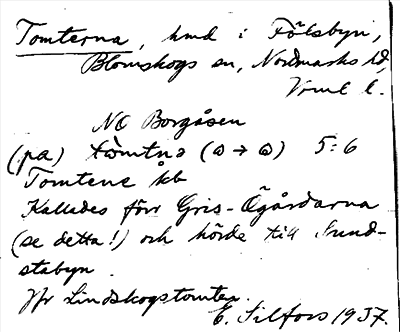 Tomterna, hmd i Fölsbyn,
Blomskogs sn, Nordmarks hd,
Vrml l.
NO Borgåsen
(pa) tòmtnə (ɷ → ɷ) 5:6
Tomtene kb
Kallades förr Gris-Ögårdarna
(se detta!) och hörde till Sund-
stabyn.
Jfr Lindskogstomten.
E. Silfors 1937.